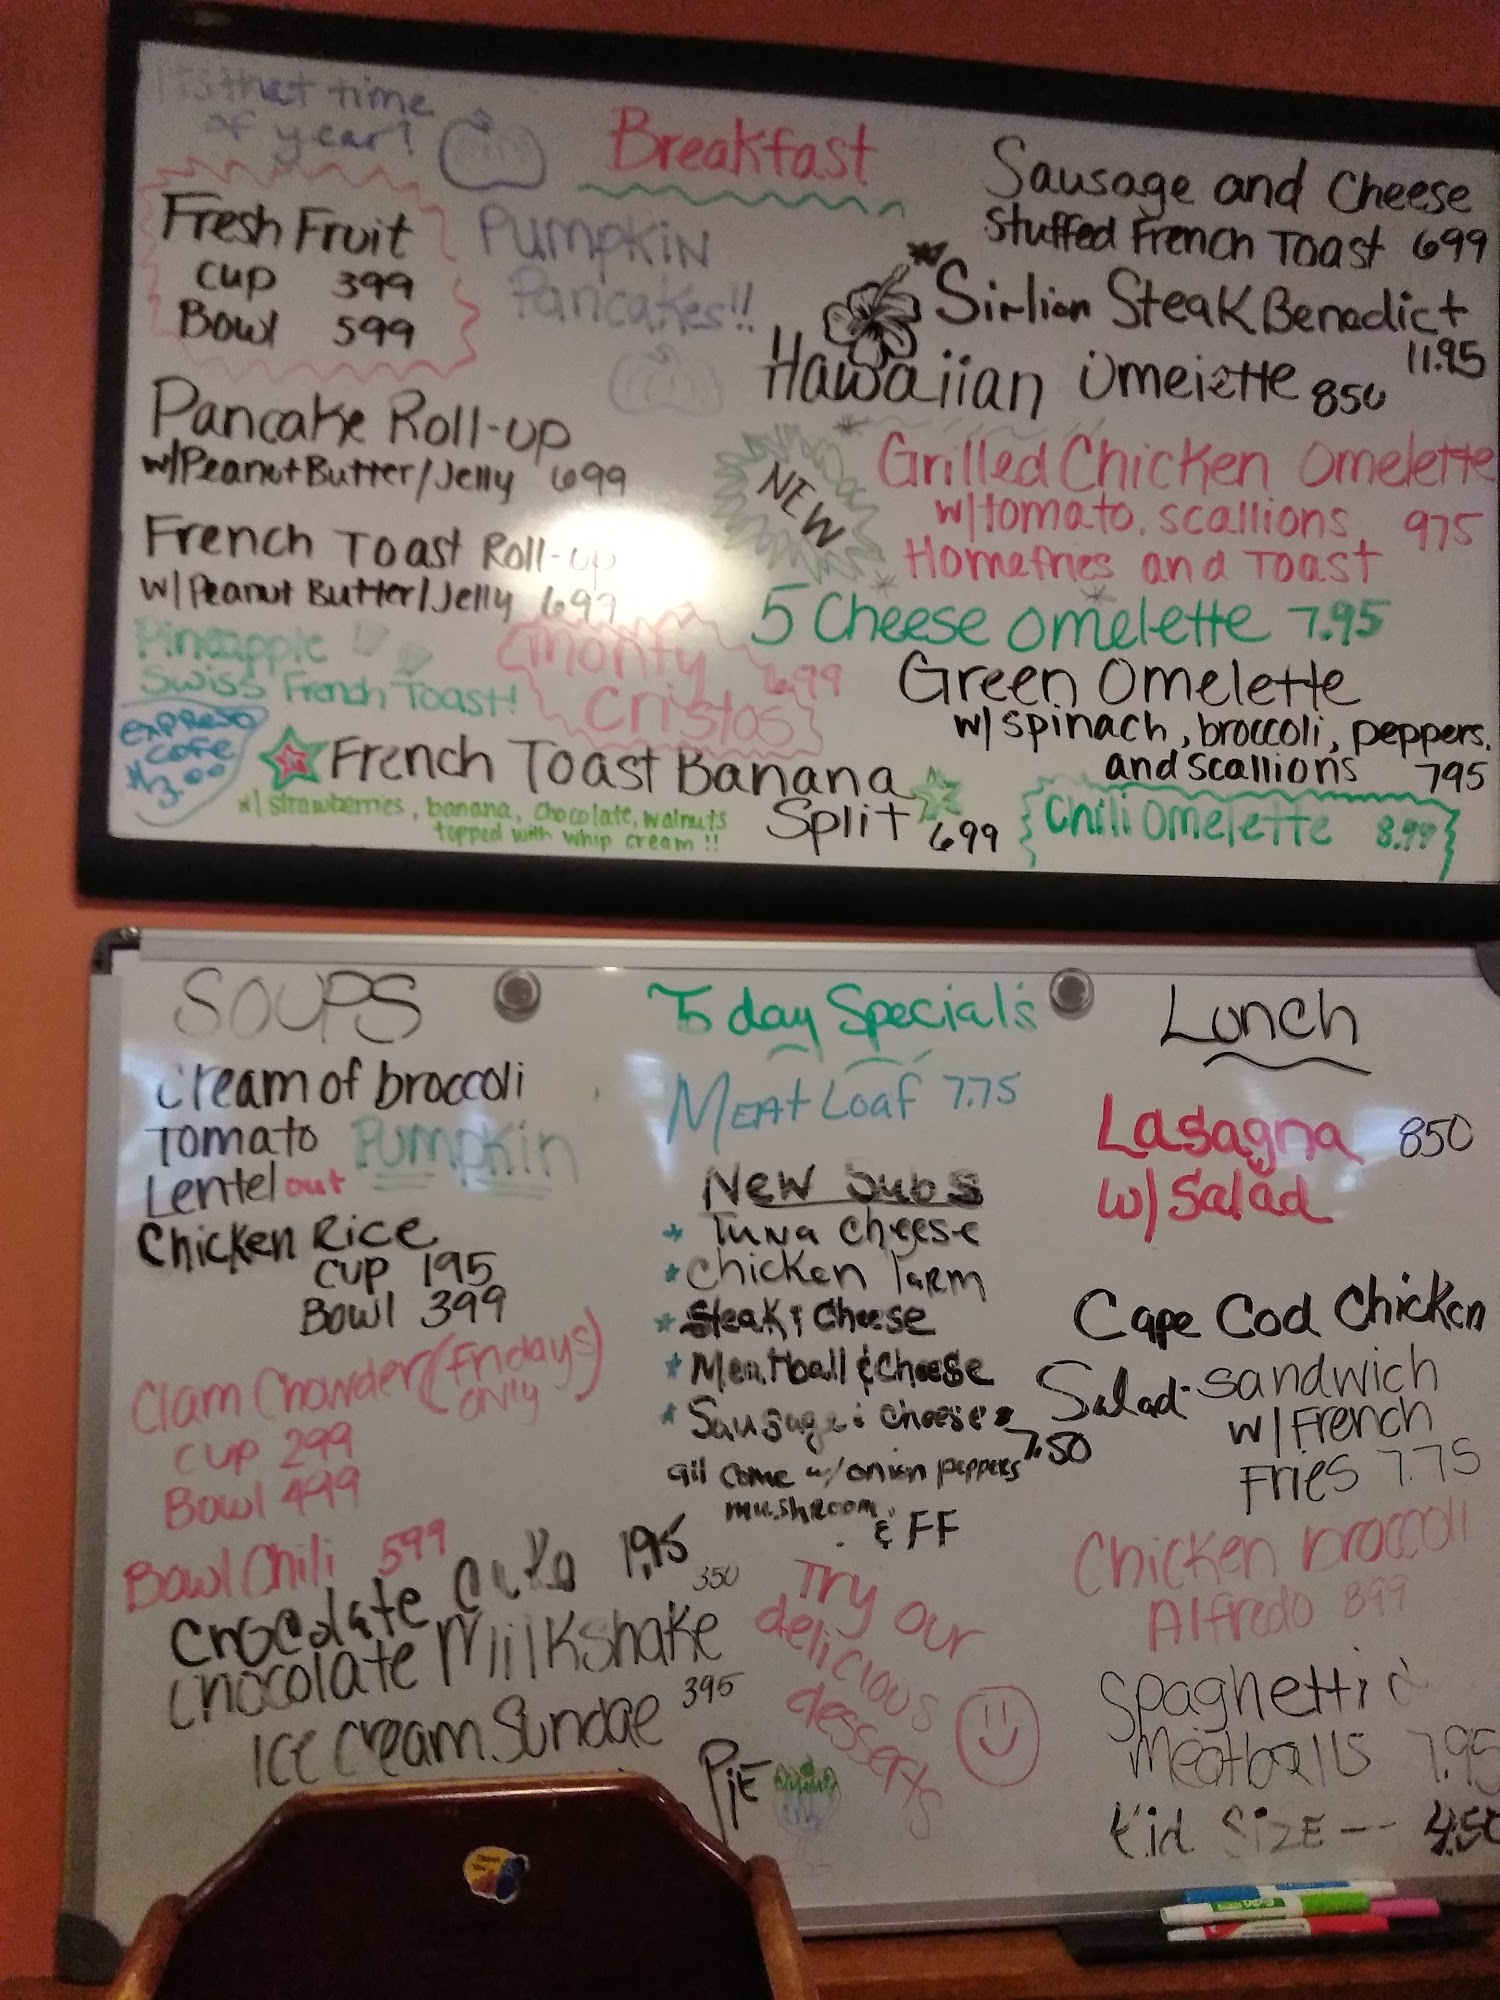 Its that time
of year!
Breakfast
Fresh Fruit
Cup 399
Bowl 599
Pumpkin
Pancakes!!
Pancake Roll-up
w/Peanut Butter/Jelly 699
French Toast Roll-up
w/Peanut Butter/Jelly 699
Pineapple
Swiss French Toast!
Monty 6.99
Cristos
expreso
cofe
$3.00
French Toast Banana
Split 699
w/ strawberries, banana, chocolate, walnuts
topped with whip cream !!
Sausage and Cheese
Stuffed French Toast 699
Sirlion Steak Benedict
11.95
Hawaiian Omelette 850
NEW
Grilled Chicken Omelette
w/tomato, scallions 975
Homefries and Toast
5 Cheese omelette 7.95
Green Omelette
w/ spinach, broccoli, peppers,
and scallions 795
Chili Omelette 8.99
SOUPS
Cream of broccoli
Tomato Pumpkin
Lentel out
Chicken Rice
Cup 195
Bowl 399
Clam Chowder (Fridays
only)
Cup 299
Bowl 499
Bowl Chili 599
Chocolate 1.95
350
Chocolate Milkshake
Ice Cream Sundae 395
Pie
Today Special's
Meat Loaf 7.75
New Subs
Tuna Cheese
Chicken Parm
Steak & Cheese
Meatball & Cheese
Sausage & Cheese
7.50
all come w/ onion peppers
mushroom
& FF
Try our
delicious
desserts
Lunch
Lasagna 850
w/ Salad
Cape Cod Chicken
Salad-Sandwich
w/ French
Fries 7.75
Chicken broccoli
Alfredo 899
Spaghetti &
Meatballs 7.95
Kid Size -- 4.50